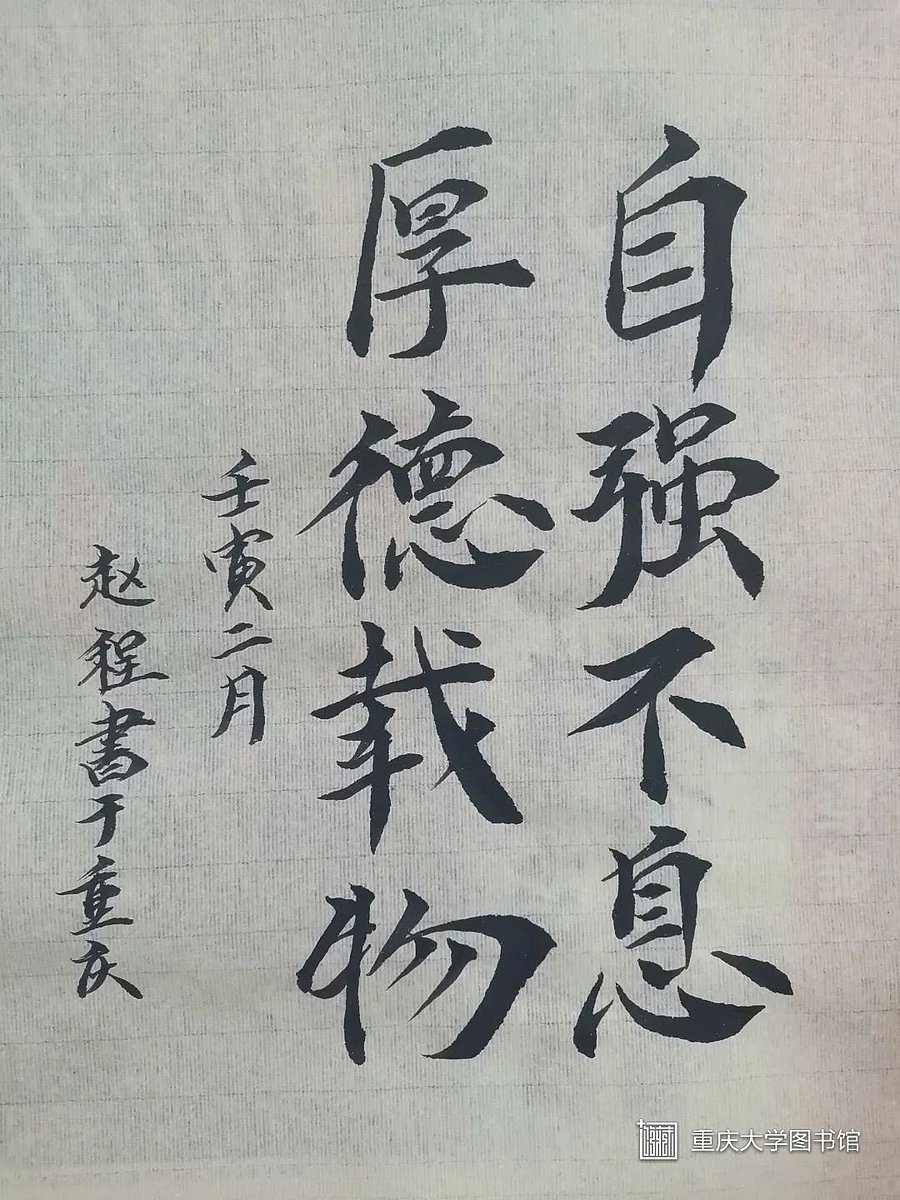 自强不息
厚德载物
壬寅二月
赵程書于重庆
重庆大学图书馆